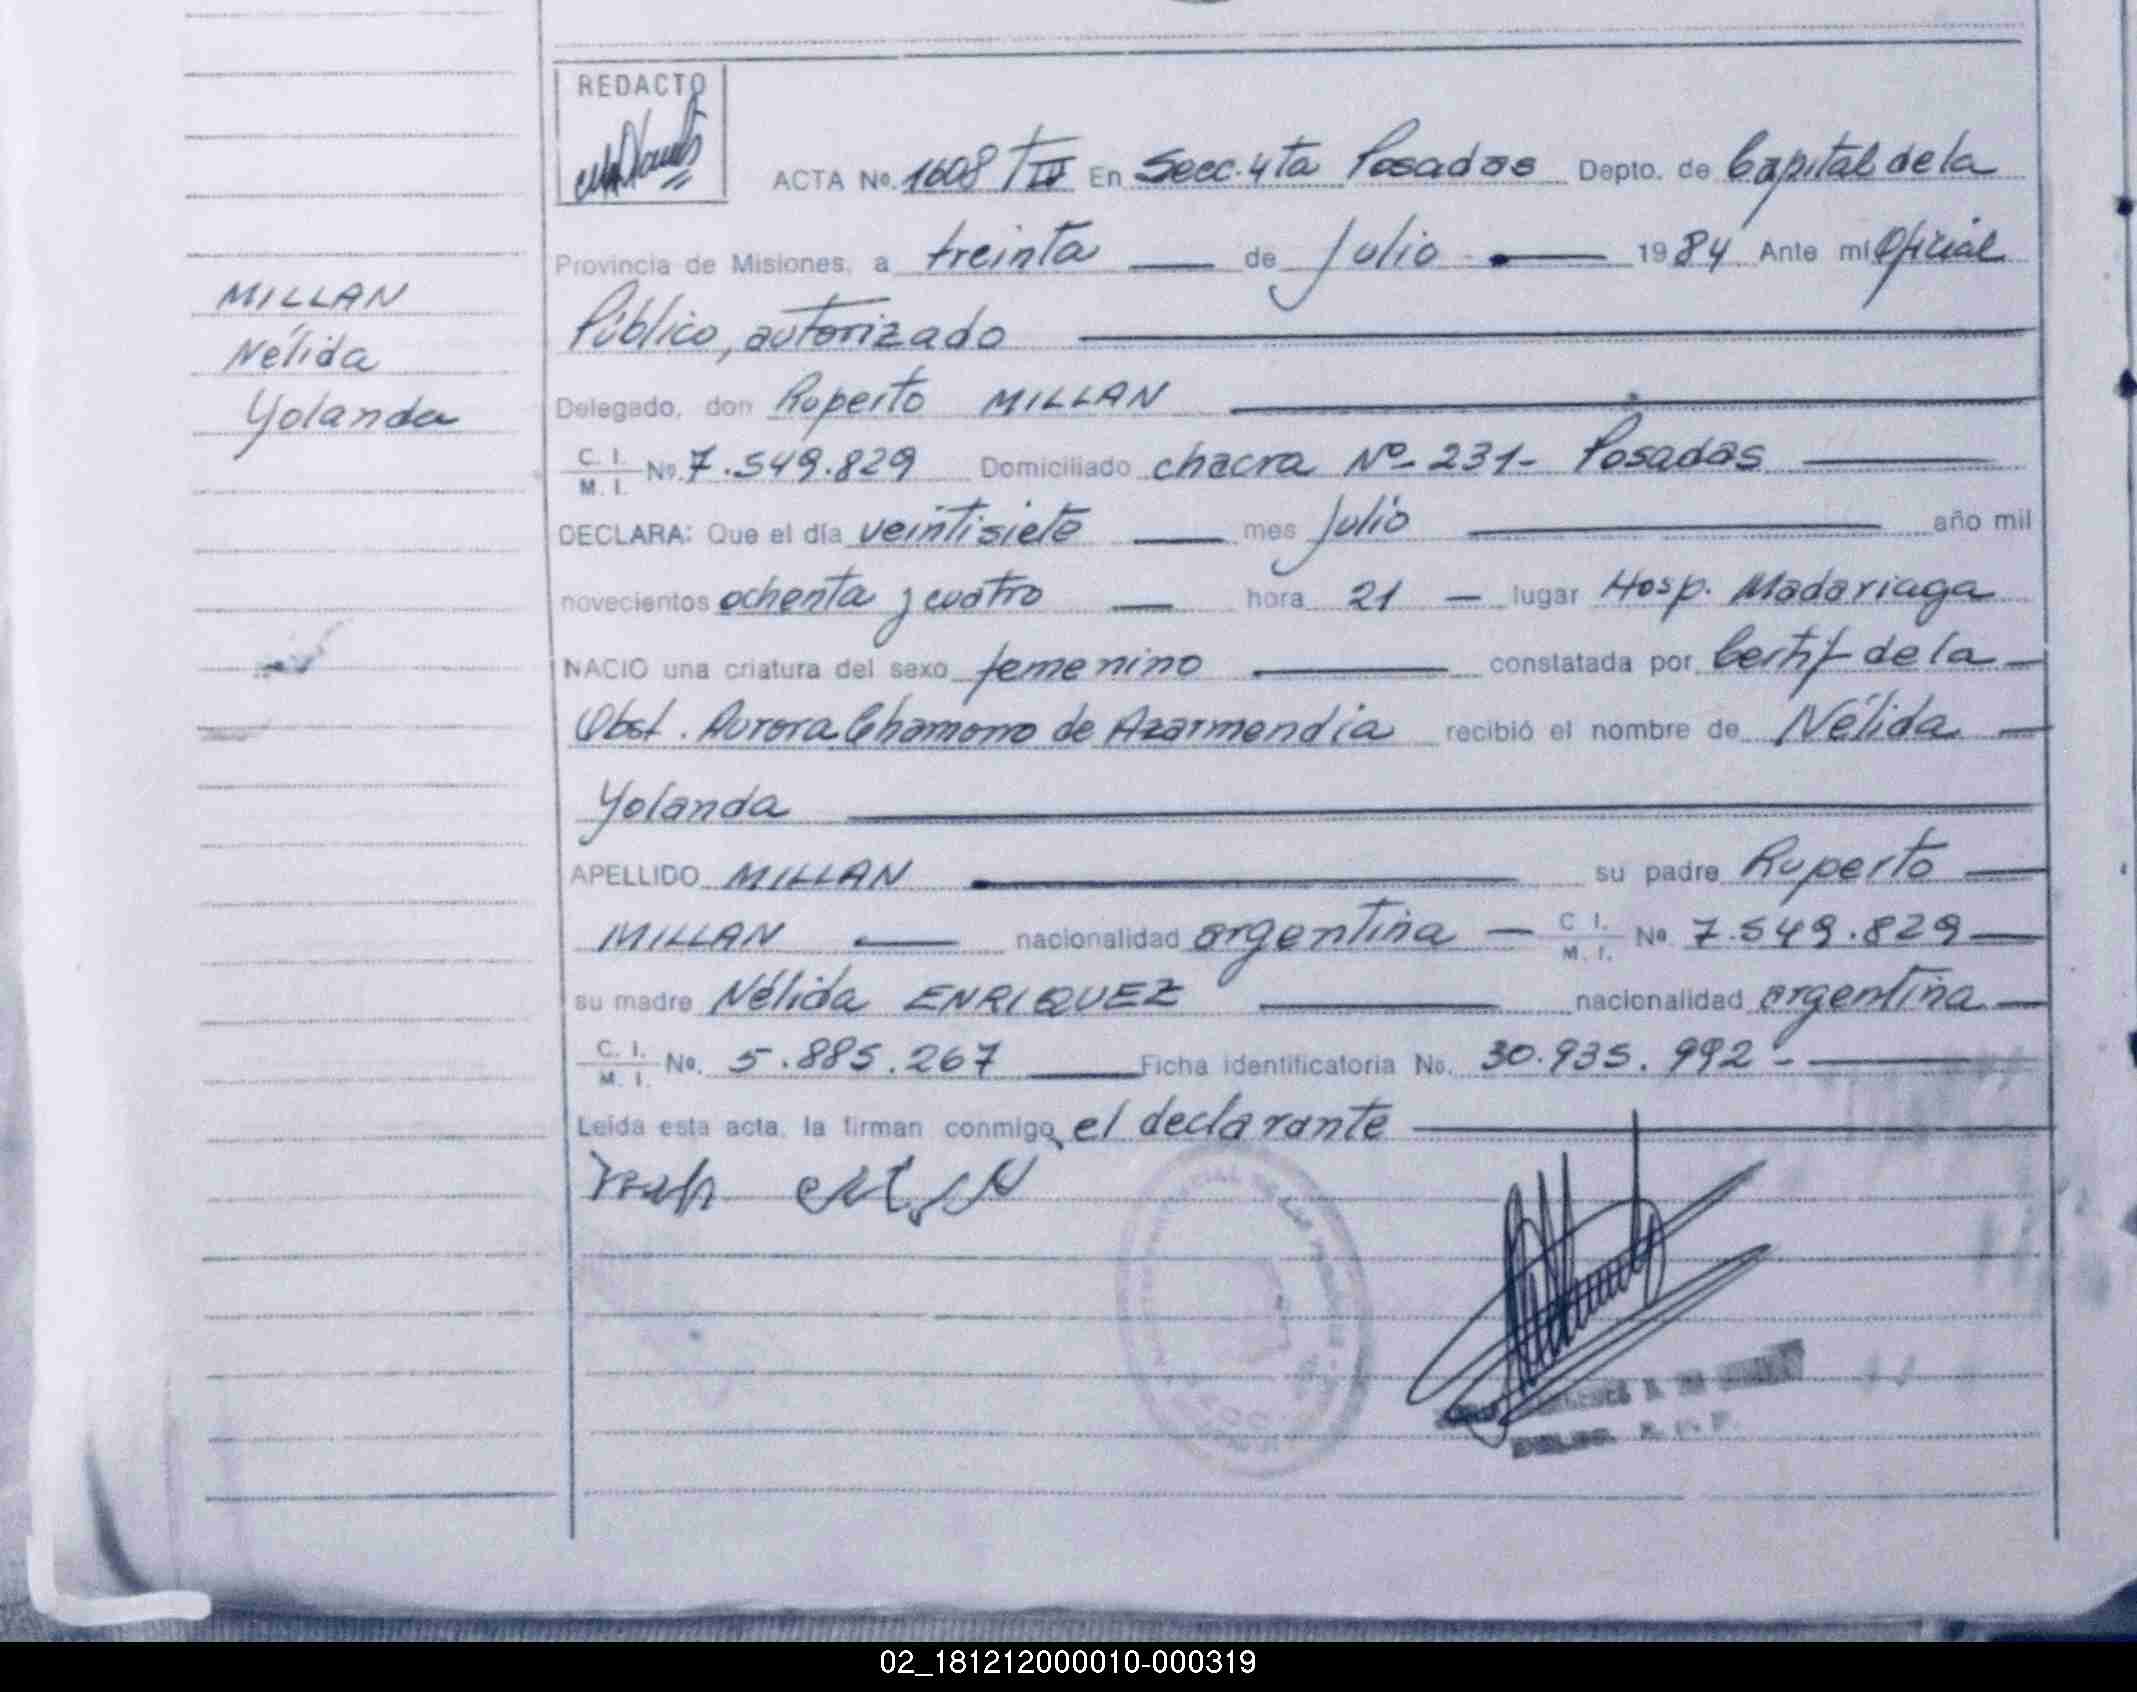 REDACTO
ACTA Nº. 1608 T IV En Secc. 4ta Posadas Depto. de Capital de la
Provincia de Misiones, a treinta de Julio 1984 Ante mi Oficial
Público, autorizado
Delegado, don Ruperto MILLAN
C. I. M. I. Nº. 7.549.829 Domiciliado chacra Nº 231- Posadas
DECLARA: Que el día veintisiete mes Julio año mil
novecientos ochenta y cuatro hora 21 lugar Hosp. Madariaga
NACIO una criatura del sexo femenino constatada por Certif de la
Obst. Aurora Chamorro de Azarmendia recibió el nombre de Nélida
Yolanda
APELLIDO MILLAN su padre Ruperto
MILLAN nacionalidad argentina C I. M. I. Nº 7.549.829
su madre Nélida ENRIQUEZ nacionalidad argentina
C. I. M. I. Nº. 5.885.267 Ficha identificatoria No. 30.935.992-
Leída esta acta, la firman conmigo, el declarante
MILLAN
Nélida
Yolanda
02_181212000010-000319